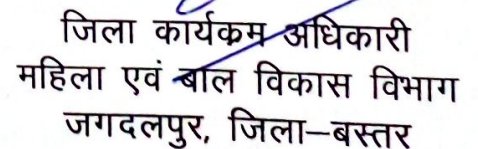 जिला कार्यक्रम अधिकारी
महिला एवं बाल विकास विभाग
जगदलपुर, जिला–बस्तर